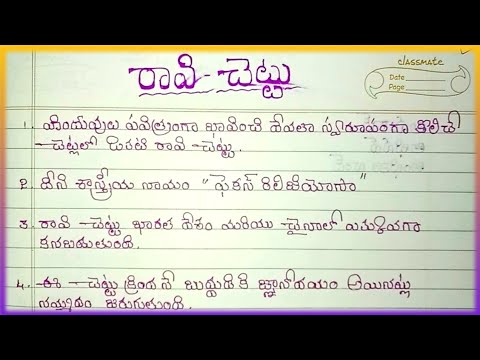 classmate
Date
Page
రావి-చెట్టు
1. హిందువులు పవిత్రంగా భావించి దేవతా స్వరూపంగా కొలిచే
-చెట్లలో ఒకటి రావి -చెట్టు.
2. దీని శాస్త్రీయ నామం "ఫైకస్ రిలిజియోసా"
3. రావి -చెట్టు భారత దేశం మరియు -చైనాలో విరివిగా
కనబడుతుంది.
4. ఈ -చెట్టు క్రిందనే బుద్ధుడికి జ్ఞానోదయం అయినట్లు
నమ్మకం జరుగుతుంది.